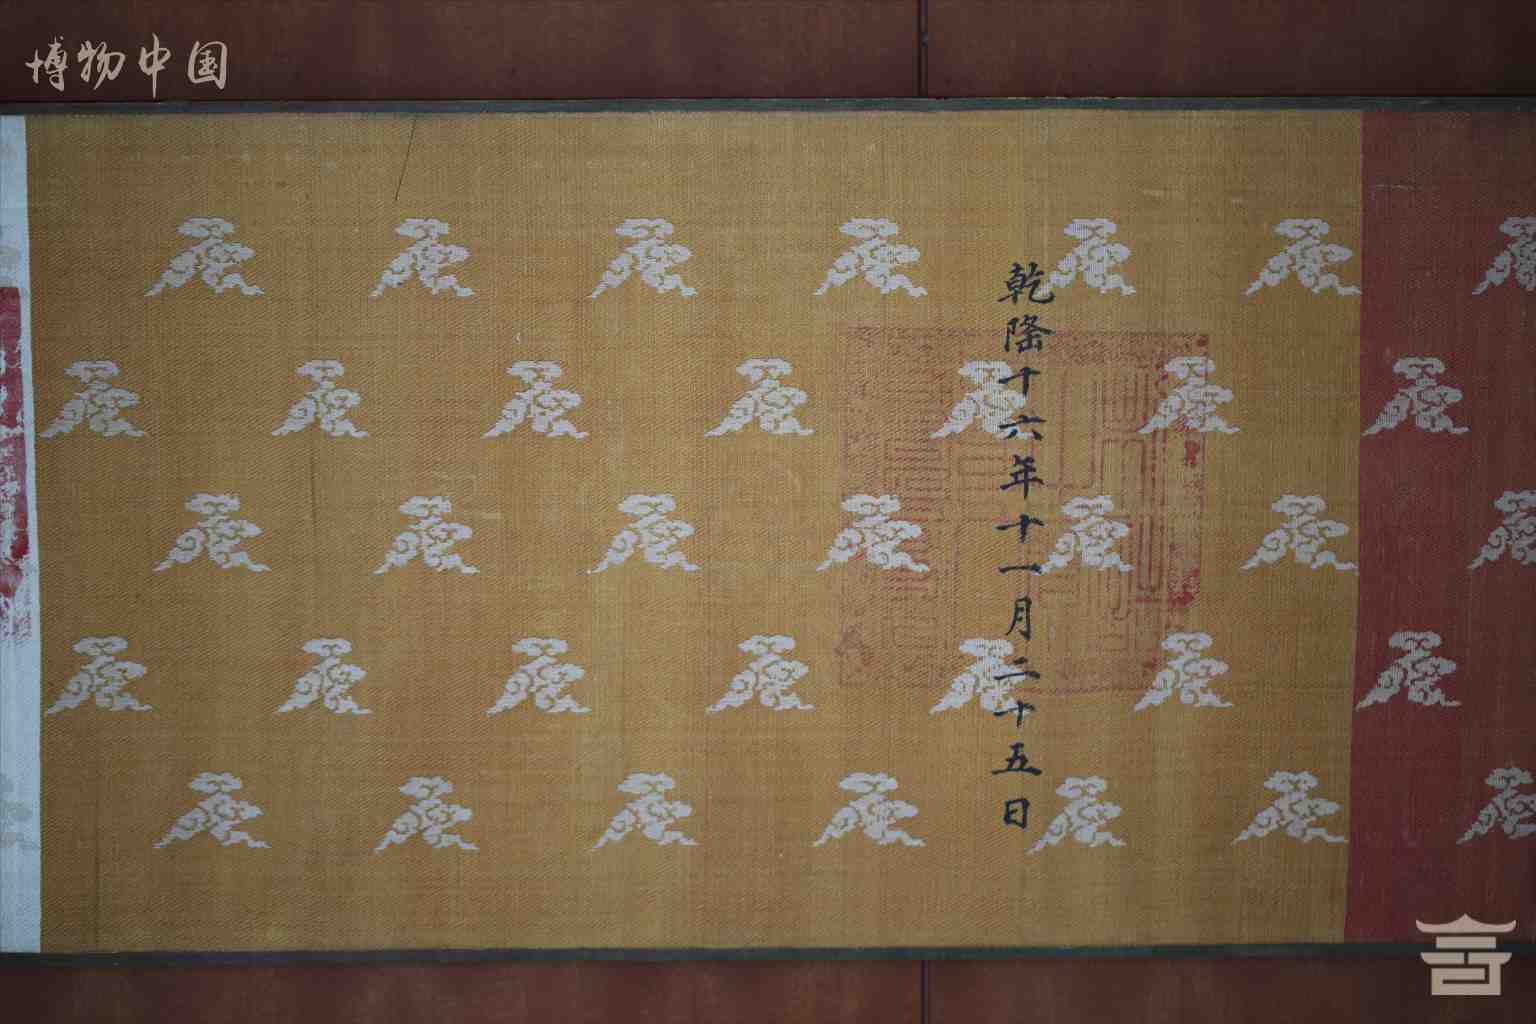 博物中国
乾隆十六年十一月二十五日